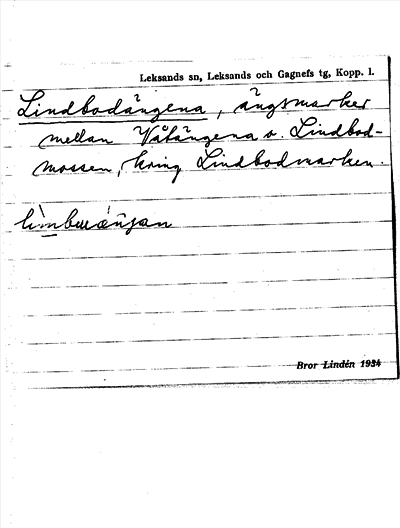 Leksands sn, Leksands och Gagnefs tg, Kopp. l.
Lindbodängena, ängsmarker
mellan Våtängena o. Lindbod-
mossen, kring Lindbodmarken.
Bror Lindén 1934